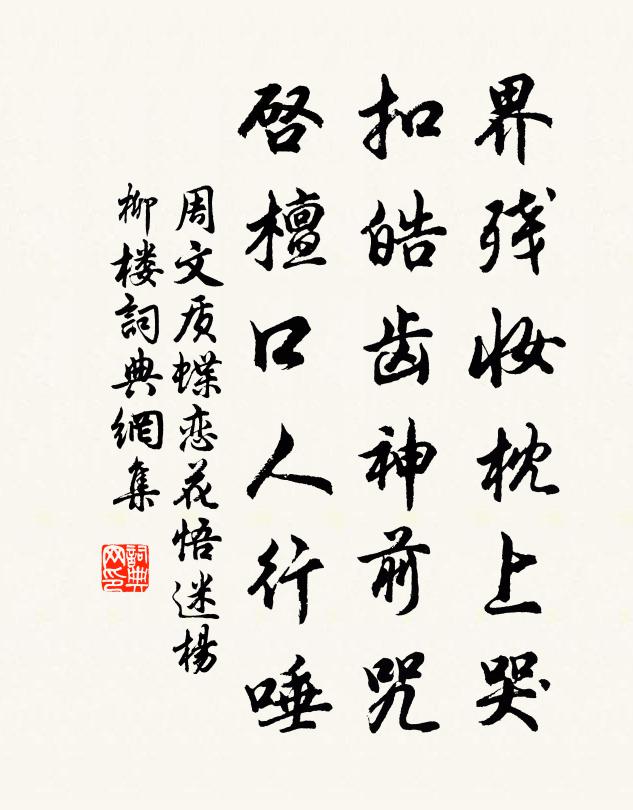 界残妆枕上哭
扣皓齿神前咒
启檀口人行唾
周文质蝶恋花悟迷杨
柳楼詞典網集
詞典网印